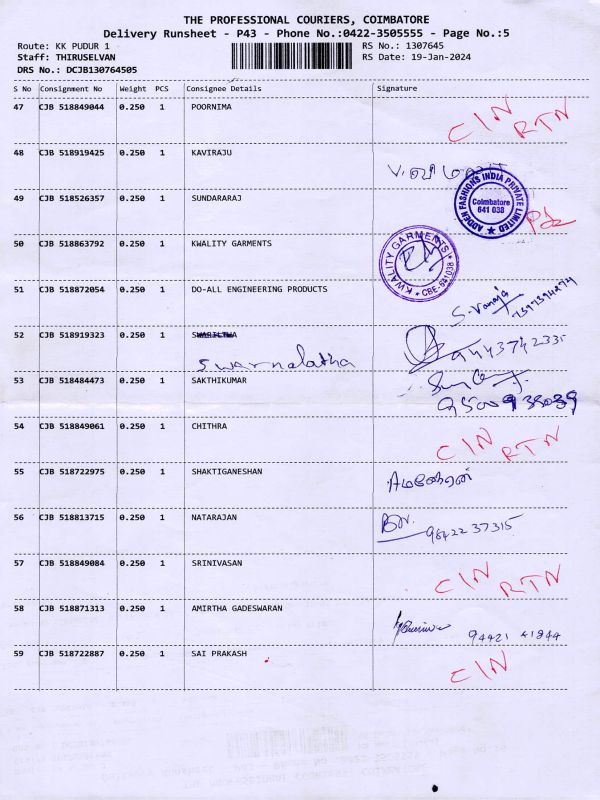 THE PROFESSIONAL COURIERS, COIMBATORE
Delivery Runsheet - P43 - Phone No.:0422-3505555 - Page No.:5
Route: KK PUDUR 1 RS No.: 1307645
Staff: THIRUSELVAN RS Date: 19-Jan-2024
DRS No.: DCJB130764505
S No Consignment No Weight PCS Consignee Details Signature
47 CJB 518849044 0.250 1 POORNIMA CIN RTN
48 CJB 518919425 0.250 1 KAVIRAJU
49 CJB 518526357 0.250 1 SUNDARARAJ
ADDEN FASHIONS INDIA PRIVATE LIMITED
Coimbatore
641 038
50 CJB 518863792 0.250 1 KWALITY GARMENTS
KWALITY GARMENTS
CBE-641038
51 CJB 518872054 0.250 1 DO-ALL ENGINEERING PRODUCTS S. Vanaja
52 CJB 518919323 0.250 1 9443742335
Swarnalatha
53 CJB 518484473 0.250 1 SAKTHIKUMAR
54 CJB 518849061 0.250 1 CHITHRA CIN RTN
55 CJB 518722975 0.250 1 SHAKTIGANESHAN
56 CJB 518813715 0.250 1 NATARAJAN
9842237315
57 CJB 518849084 0.250 1 SRINIVASAN CIN RTN
58 CJB 518871313 0.250 1 AMIRTHA GADESWARAN
94421 41844
59 CJB 518722887 0.250 1 SAI PRAKASH CIN